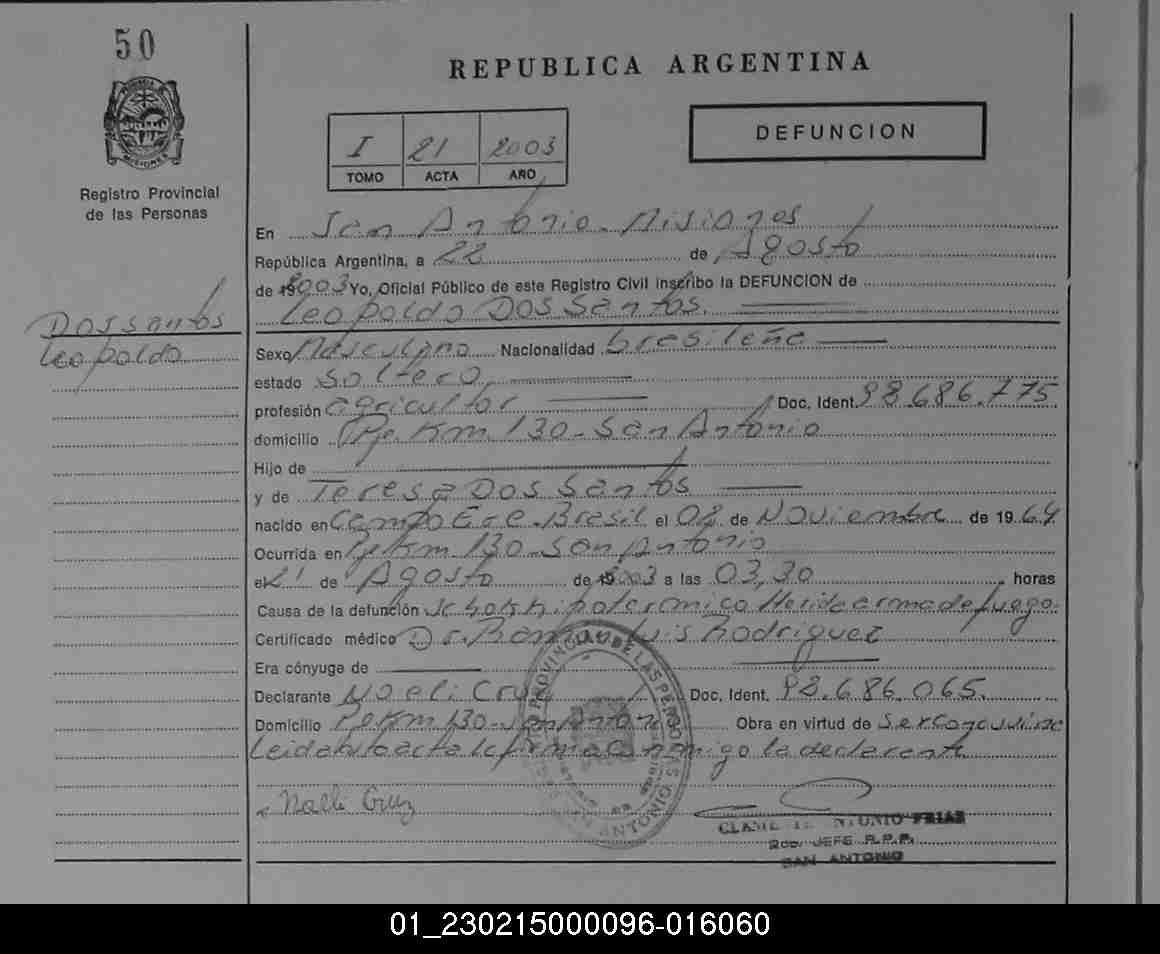 50
REPUBLICA ARGENTINA
DEFUNCION
I 21 2003
TOMO ACTA AÑO
PROVINCIA DE MISIONES
Registro Provincial
de las Personas
Dos santos
Leopoldo
En San Antonio. Misiones
República Argentina, a 22 de Agosto
de 2003 Yo, Oficial Público de este Registro Civil inscribo la DEFUNCION de
Leopoldo Dos Santos.
Sexo Masculino Nacionalidad bresileña
estado Soltero
profesión agricultor Doc. Ident. 98.686.775
domicilio Pje. Km. 130 - San Antonio
Hijo de
y de Teresa Dos Santos
nacido en Campo Ere. Bresil el 08 de Noviembre de 1964
Ocurrida en Pje Km 130 - San Antonio
el 21 de Agosto de 2003 a las 03,30 horas
Causa de la defunción Schok hipolermico Herida arma de fuego.
Certificado médico Dr. Ramon Luis Rodriguez
Era cónyuge de
Declarante Noeli Cruz Doc. Ident. 92.686.065.
Domicilio Pje Km 130 - San Antonio Obra en virtud de ser
Leida el acta la firma conmigo la declarante
Noeli Cruz
ANTONIO FRIAS
JEFE R.P.P.
SAN ANTONIO
01_230215000096-016060